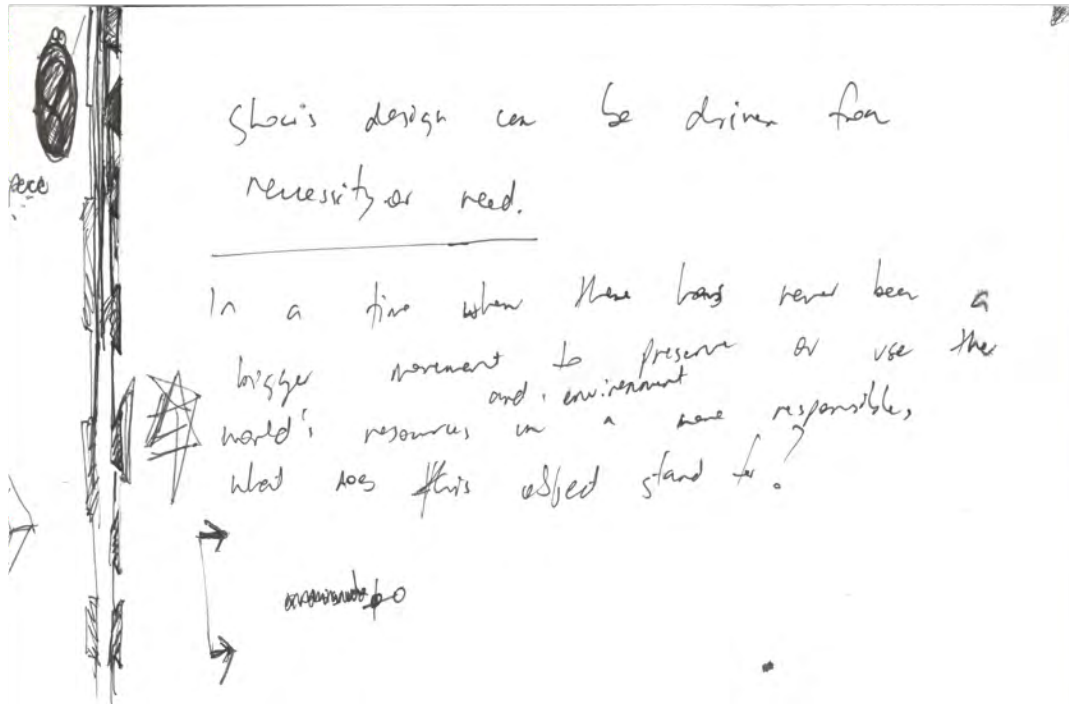 Shows design can be driven from
necessity or need.
In a time when there has never been a
bigger movement to preserve or use the
and environment
world's resources in a more responsible,
what does this object stand for?